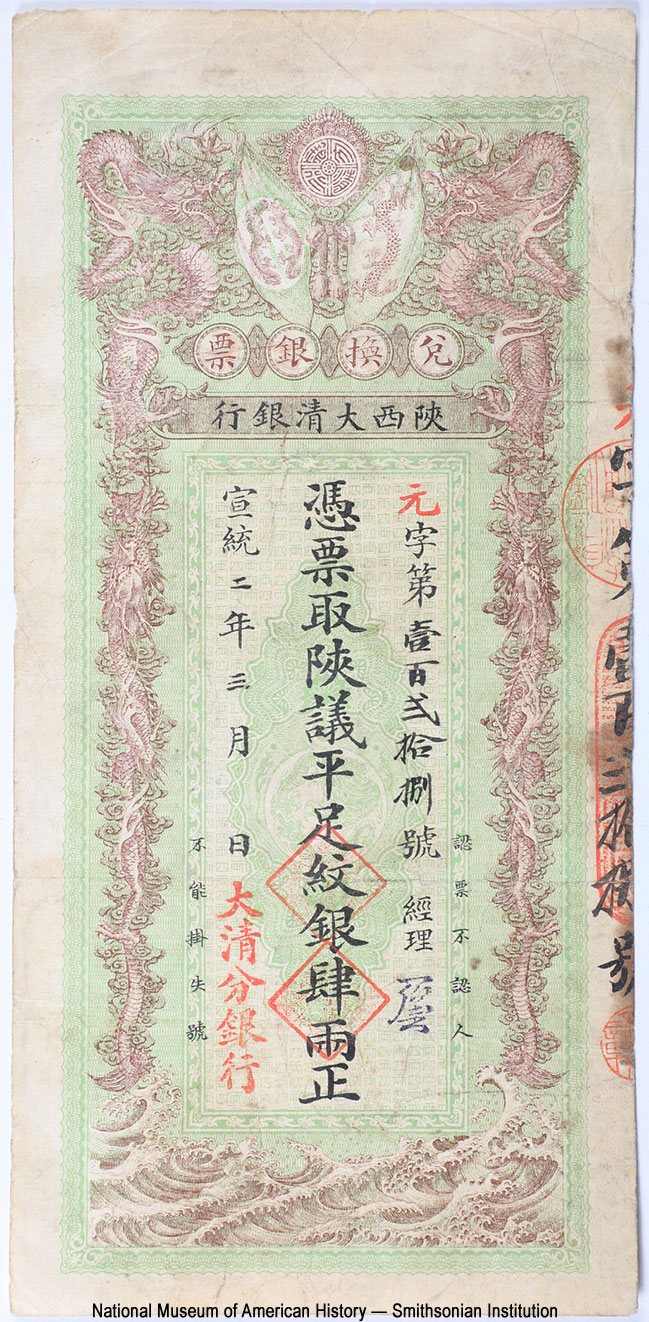 兌換銀票
陝西大清銀行
認票不認人
元字第壹百弍拾捌號 經理
憑票取陝議平足紋銀肆兩正
宣統二年三月 日 大清分銀行
不能掛失號
National Museum of American History — Smithsonian Institution